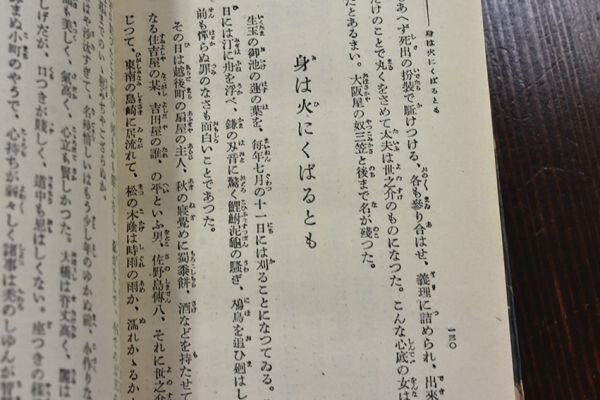 身は火にくばるとも
一三〇
あへず死出の扮裝で駈けつける、各も參り合はせ、義理に詰められ、出來
だけのことで丸くをさめて太夫は世之介のものになつた。こんな心底の女は
たとあるまい。大阪屋の奴三笠と後まで名が殘つた。
身は火にくばるとも
生玉の御池の蓮の葉を、毎年七月の十一日には刈ることになつてゐる。
日には汀に舟を浮べ、鎌の刄音に驚く鯉鮒泥龜の騷ぎ、鳰鳥を追ひ廻はし
前も憚らぬ罪のなさも面白いことであつた。
その日は越後町の扇屋の主人、秋の寢覺めに蜀黍餅、酒などを持たせて
なる住吉屋の某、吉田屋の誰の平といふ男、佐野島傳八、それに世之介
じつて、東南の島崎に居流れて、松の木蔭は時雨の雨か、濡れかゝるか
まぬ小町のやうで、心持ちが弱々しく諸事は美のしゆんが智
しげだが、口つきが賤しく、道中も思はしくない。座つきの樣
美しく、氣高く、心立も賢しかつた。大橋は脊丈高く、